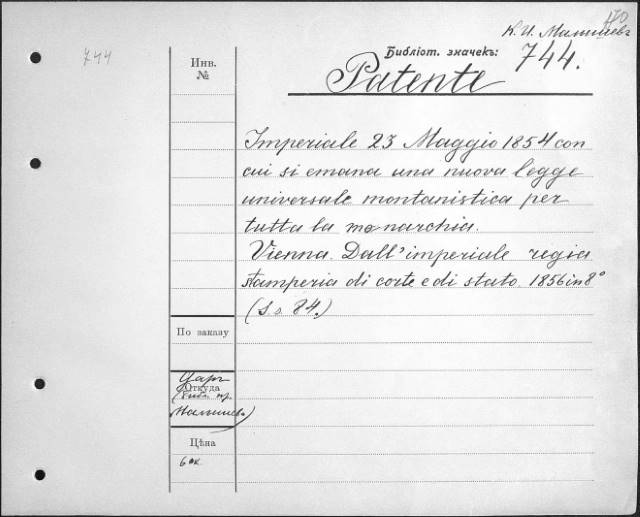 470
К. И. Малышевъ
744
Инв.
№
Библіот. значекъ:
744.
Patente
Imperiale 23 Maggio 1854 con
cui si emana una nuova legge
universale montanistica per
tutta la monarchia.
Vienna. Dall'imperiale regia
stamperia di corte e di stato. 1856 in 8°
(S.s. 84.)
По заказу
Даръ
Откуда
(библ. пр.
Малышева)
Цѣна
60к